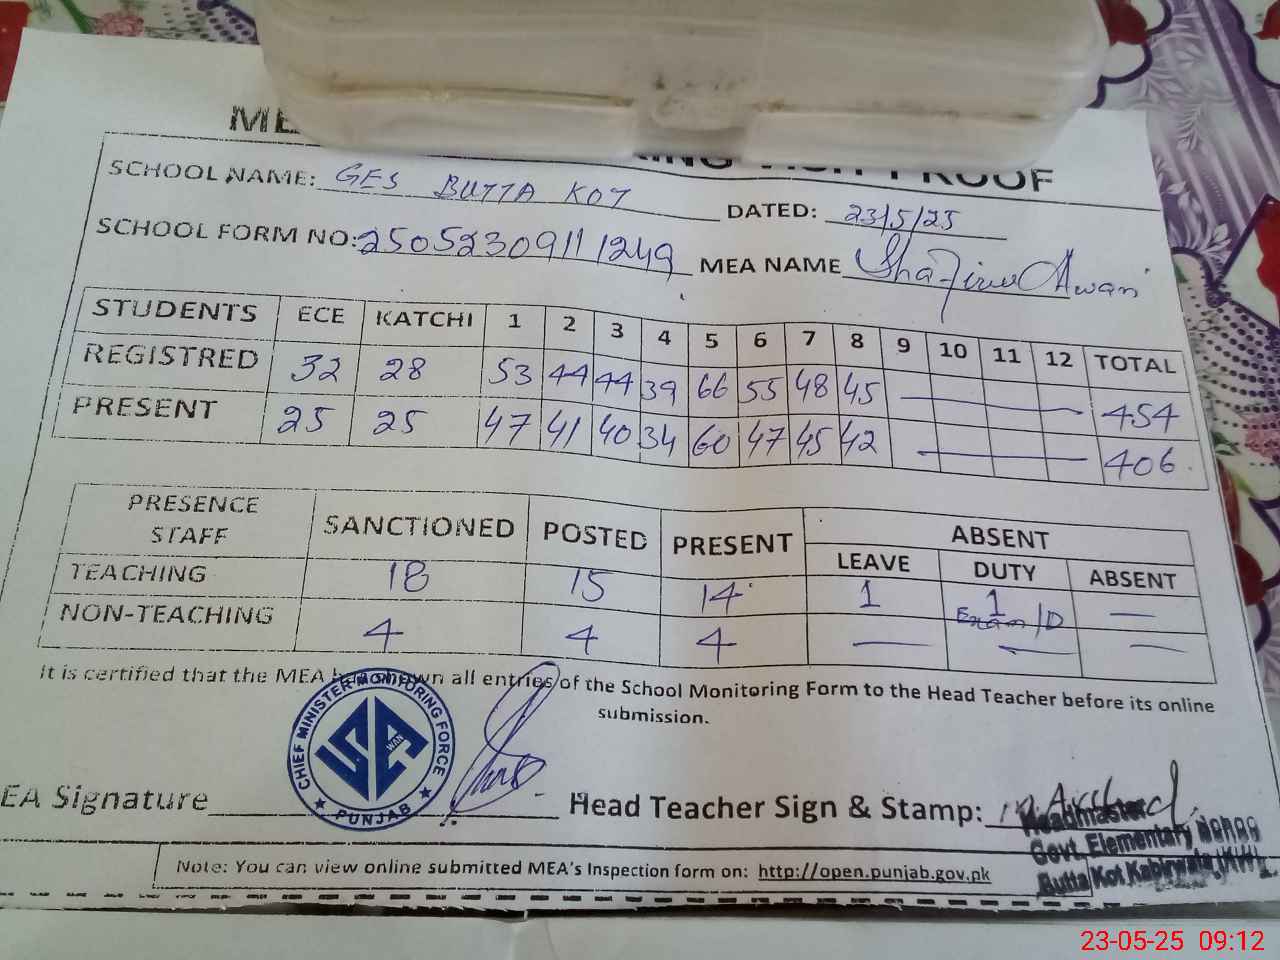 SCHOOL NAME: GES BUTTA KOT
DATED: 23/5/25
SCHOOL FORM NO: 2505230911 1249
MEA NAME Awan
STUDENTS ECE KATCHI 1 2 3 4 5 6 7 8 9 10 11 12 TOTAL
REGISTRED 32 28 53 44 44 39 66 55 48 45 — 454
PRESENT 25 25 47 41 40 34 60 47 45 42 — 406
PRESENCE STAFF SANCTIONED POSTED PRESENT ABSENT
LEAVE DUTY ABSENT
TEACHING 18 15 14 1 1 Exam/D —
NON-TEACHING 4 4 4 — — —
It is certified that the MEA has shown all entries of the School Monitoring Form to the Head Teacher before its online
submission.
CHIEF MINISTER MONITORING FORCE
PUNJAB
EA Signature
Head Teacher Sign & Stamp:
Headmaster
Govt. Elementary School
Butta Kot Kabirwala (KWL)
Note: You can view online submitted MEA's Inspection form on: http://open.punjab.gov.pk
23-05-25 09:12